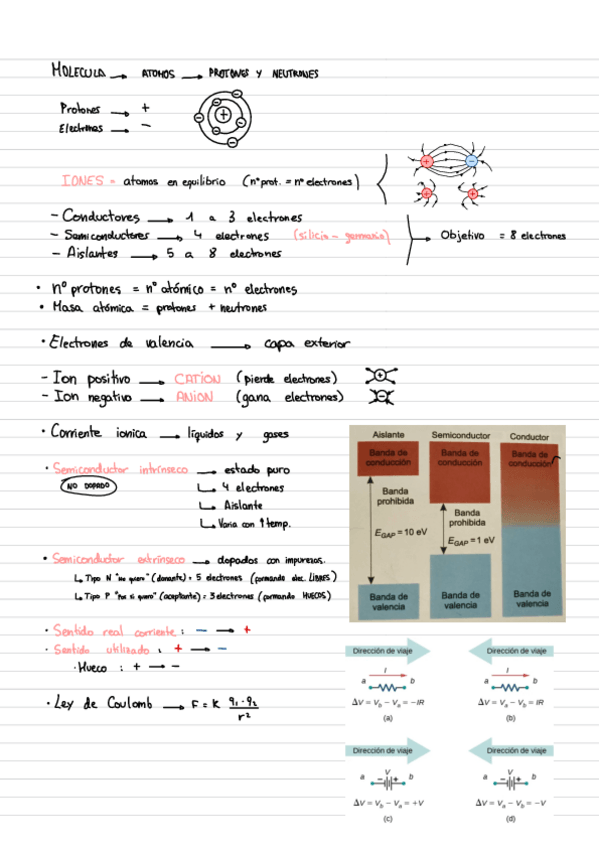 MOLECULA → ATOMOS → PROTONES Y NEUTRONES
Protones → +
Electrones → −
IONES = atomos en equilibrio (nº prot. = nº electrones)
- Conductores → 1 a 3 electrones
- Semiconductores → 4 electrones (silicio - germanio) → Objetivo = 8 electrones
- Aislantes → 5 a 8 electrones
• nº protones = nº atómico = nº electrones
• Masa atómica = protones + neutrones
• Electrones de valencia → capa exterior
- Ion positivo → CATION (pierde electrones)
- Ion negativo → ANION (gana electrones)
• Corriente ionica → líquidos y gases
• Semiconductor intrínseco → estado puro
NO DOPADO
↳ 4 electrones
↳ Aislante
↳ Varia con ↑temp.
• Semiconductor extrínseco → dopados con impurezas.
↳ Tipo N "No quiero" (donante) = 5 electrones (formando elec. LIBRES)
↳ Tipo P "Pos si quiero" (aceptante) = 3 electrones (formando HUECOS)
• Sentido real corriente : − → +
• Sentido utilizado : + → −
• Hueco : + → −
• Ley de Coulomb → F = K q₁·q₂ / r²
Aislante Semiconductor Conductor
Banda de conducción
Banda prohibida
E_GAP = 10 eV
Banda de valencia
Banda de conducción
Banda prohibida
E_GAP = 1 eV
Banda de valencia
Banda de conducción
Banda de valencia
Dirección de viaje
I
a b
ΔV = V_b − V_a = −IR
(a)
Dirección de viaje
I
a b
ΔV = V_a − V_b = IR
(b)
Dirección de viaje
V
a − + b
ΔV = V_b − V_a = +V
(c)
Dirección de viaje
V
a − + b
ΔV = V_a − V_b = −V
(d)